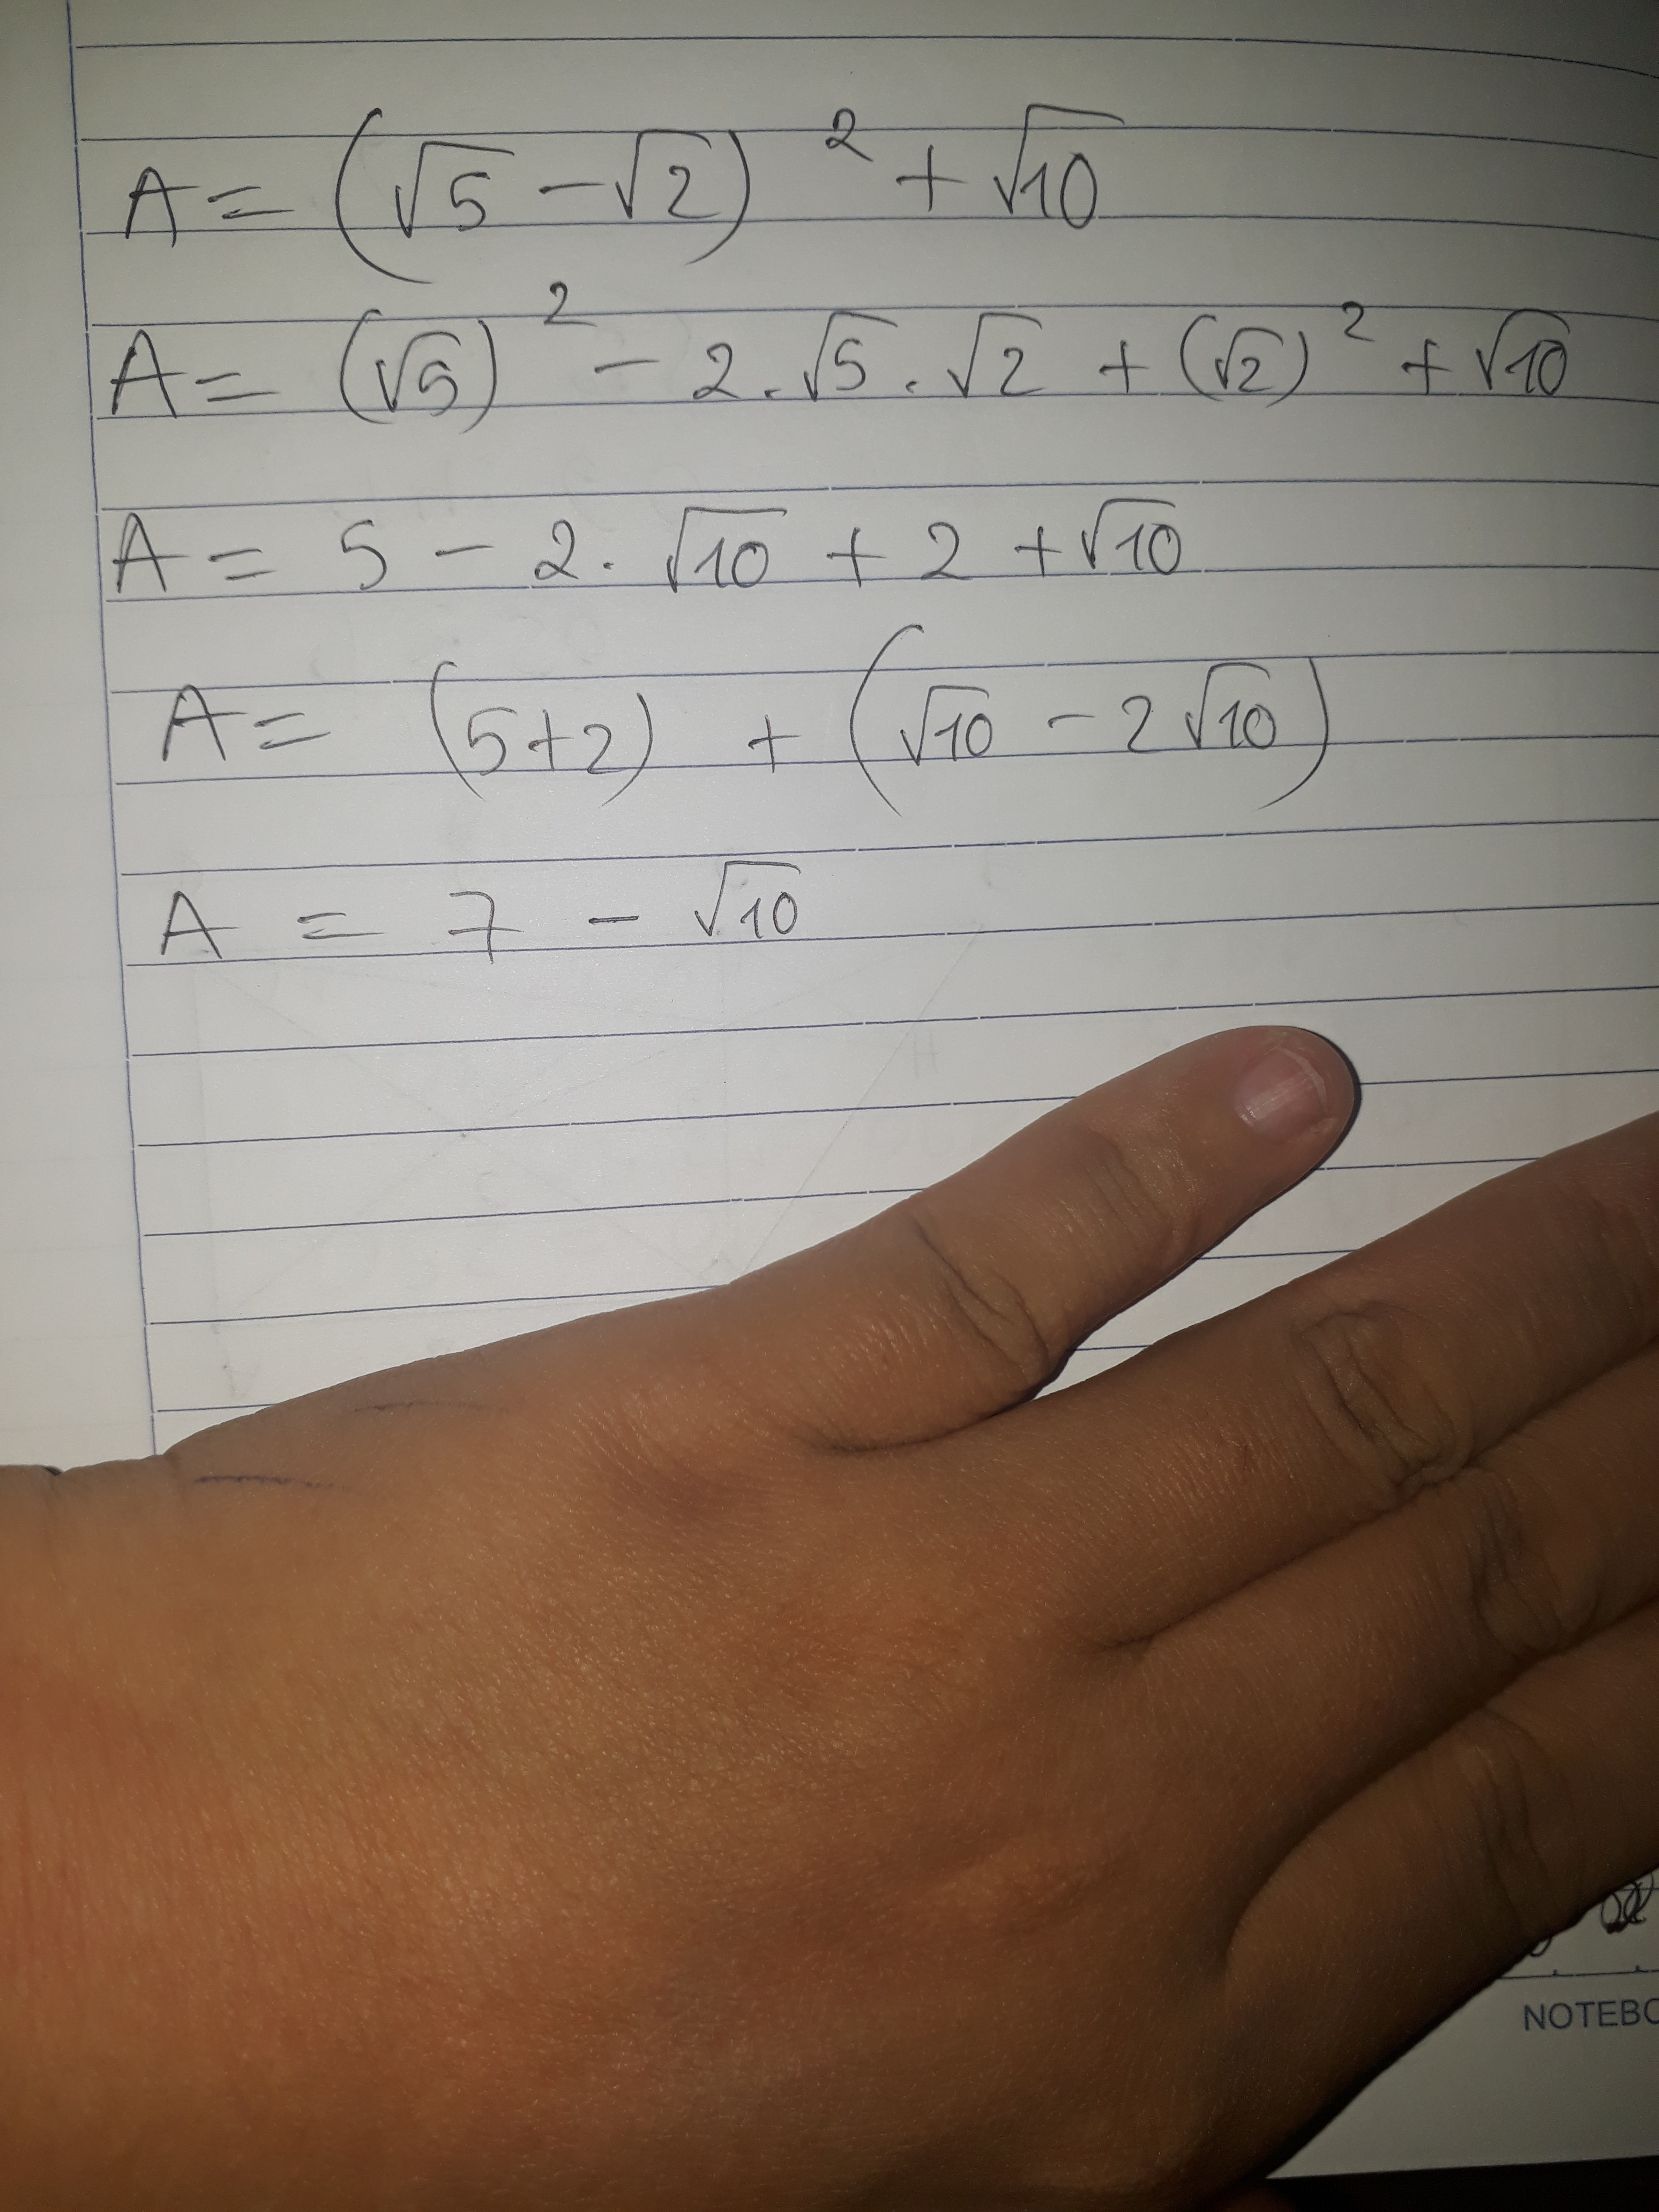 A = (√5 - √2)² + √10
A = (√5)² - 2.√5.√2 + (√2)² + √10
A = 5 - 2.√10 + 2 + √10
A = (5+2) + (√10 - 2√10)
A = 7 - √10